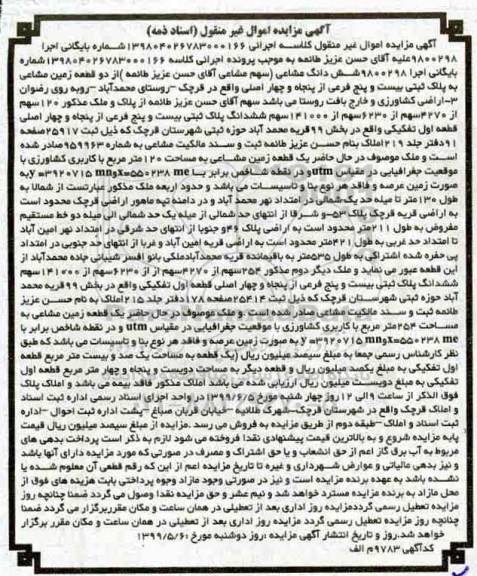 آگهی مزایده اموال غیر منقول (اسناد ذمه)
آگهی مزایده اموال غیر منقول کلاسه اجرائی ۱۳۹۸۰۴۰۲۶۷۸۳۰۰۰۱۶۶ شماره بایگانی اجرا
۹۸۰۰۲۹۸ علیه آقای حسن عزیز طائمه به موجب پرونده اجرائی کلاسه ۱۳۹۸۰۴۰۲۶۷۸۳۰۰۰۱۶۶ شماره
بایگانی اجرا ۹۸۰۰۲۹۸ شش دانگ مشاعی (سهم مشاعی آقای حسن عزیز طائمه) از دو قطعه زمین مشاعی
به پلاک ثبتی بیست و پنج فرعی از پنجاه و چهار اصلی واقع در قرچک –روستای محمدآباد –روبه روی رضوان
۳–اراضی کشاورزی و خارج بافت روستا می باشد سهم آقای حسن عزیز طائمه از پلاک و ملک مذکور ۱۲۰سهم
از ۴۲۷۰سهم از ۶۲۳۰سهم از ۱۴۱۰۰۰سهم ششدانگ پلاک ثبتی بیست و پنج فرعی از پنجاه و چهار اصلی
قطعه اول تفکیکی واقع در بخش ۹۹قریه محمد آباد حوزه ثبتی شهرستان قرچک که ذیل ثبت ۲۵۹۱۷صفحه
۹۱دفتر جلد ۲۱۹املاک بنام حسن عزیز طائمه ثبت و سند مالکیت مشاعی به شماره ۹۵۹۹۶۳صادر شده
است و ملک موصوف در حال حاضر یک قطعه زمین مشاعی به مساحت ۱۲۰متر مربع با کاربری کشاورزی با
موقعیت جغرافیایی در مقیاس utm و در نقطه شاخص برابر با x=۵۵۰۲۳۸ me و y=۳۹۲۰۷۱۵ mn به
صورت زمین عرصه و فاقد هر نوع بنا و تاسیسات می باشد و حدود اربعه ملک مذکور عبارتست از شمالا به
طول ۱۳۰متر تا میله حد یک شمالی در امتداد نهر محمد آباد و در دامنه تپه ماهور اراضی قرچک محدود است
به اراضی قریه قرچک پلاک ۵۳–و شرقا از انتهای حد شمالی از میله یک حد شمالی الی میله دو خط مستقیم
مفروض به طول ۲۱۱متر محدود است به اراضی پلاک ۴۶و جنوبا از انتهای حد شرقی در امتداد نهر امین آباد
تا امتداد حد غربی به طول ۴۲۱متر محدود است به اراضی قریه امین آباد و غربا از انتهای حد جنوبی در امتداد
پی حفره شده اشتراکی به طول ۵۳۵متر به باقیمانده قریه محمدآبادملکی بانو افسر شیبانی جاده محمدآباد از
این قطعه عبور می نماید و ملک دیگر دوم مذکور ۲۵۴سهم از ۴۲۷۰سهم از از ۶۲۳۰سهم از ۱۴۱۰۰۰سهم
ششدانگ پلاک ثبتی بیست و پنج فرعی از پنجاه و چهار اصلی قطعه اول تفکیکی واقع در بخش ۹۹قریه محمد
آباد حوزه ثبتی شهرستان قرچک که ذیل ثبت ۲۵۴۱۴صفحه ۱۷۸دفتر جلد ۲۱۵املاک به نام حسن عزیز
طائمه ثبت و سند مالکیت مشاعی صادر شده است و ملک موصوف در حال حاضر یک قطعه زمین مشاعی به
مساحت ۲۵۴متر مربع با کاربری کشاورزی با موقعیت جغرافیایی در مقیاس utm و در نقطه شاخص برابر با
x=۵۵۰۲۳۸ me و y=۳۹۲۰۷۱۵ mn به صورت زمین عرصه و فاقد هر نوع بنا و تاسیسات می باشد که طبق
نظر کارشناس رسمی جمعا به مبلغ سیصد میلیون ریال (یک قطعه به مساحت یک صد و بیست متر مربع قطعه
اول تفکیکی به مبلغ یکصد میلیون ریال و قطعه دیگر به مساحت دویست و پنجاه و چهار متر مربع قطعه اول
تفکیکی به مبلغ دویست میلیون ریال ارزیابی شده می باشد املاک مذکور فاقد بیمه می باشد و املاک پلاک
فوق الذکر از ساعت ۹الی ۱۲روز چهار شنبه مورخ ۱۳۹۹/۶/۵در واحد اجرای اسناد رسمی اداره ثبت اسناد
و املاک قرچک واقع در شهرستان قرچک–شهرک طلائیه –خیابان قربان صباغ –پشت اداره ثبت احوال –اداره
ثبت اسناد و املاک –طبقه دوم از طریق مزایده به فروش می رسد .مزایده از مبلغ سیصد میلیون ریال قیمت
پایه مزایده شروع و به بالاترین قیمت پیشنهادی نقدا فروخته می شود لازم به ذکر است پرداخت بدهی های
مربوط به آب برق گاز اعم از حق انشعاب و یا حق اشتراک و مصرف در صورتی که مورد مزایده دارای آنها باشد
و نیز بدهی مالیاتی و عوارض شهرداری و غیره تا تاریخ مزایده اعم از این که رقم قطعی آن معلوم شده یا
نشده باشد به عهده برنده مزایده است و نیز در صورتی وجود مازاد وجوه پرداختی بابت هزینه های فوق از
محل مازاد به برنده مزایده مسترد خواهد شد و نیم عشر و حق مزایده نقدا وصول می گردد ضمنا چنانچه روز
مزایده تعطیل رسمی گرددمزایده روز اداری بعد از تعطیلی در همان ساعت و مکان مقرربرگزار می گردد ضمنا
چنانچه روز مزایده تعطیل رسمی گردد مزایده روز اداری بعد از تعطیلی در همان ساعت و مکان مقرر برگزار
خواهد شد.روز و تاریخ انتشار آگهی مزایده :روز دوشنبه مورخ ۱۳۹۹/۵/۶
کدآگهی ۹۷۸۳م الف